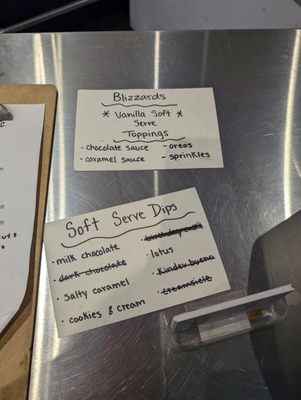 Blizzards
* Vanilla Soft *
Serve
Toppings
· chocolate sauce - oreos
· caramel sauce - sprinkles
Soft Serve Dips
· milk chocolate
· dark chocolate
· Salty caramel
· cookies & cream
· lotus
· Kinder bueno
· creamsicle